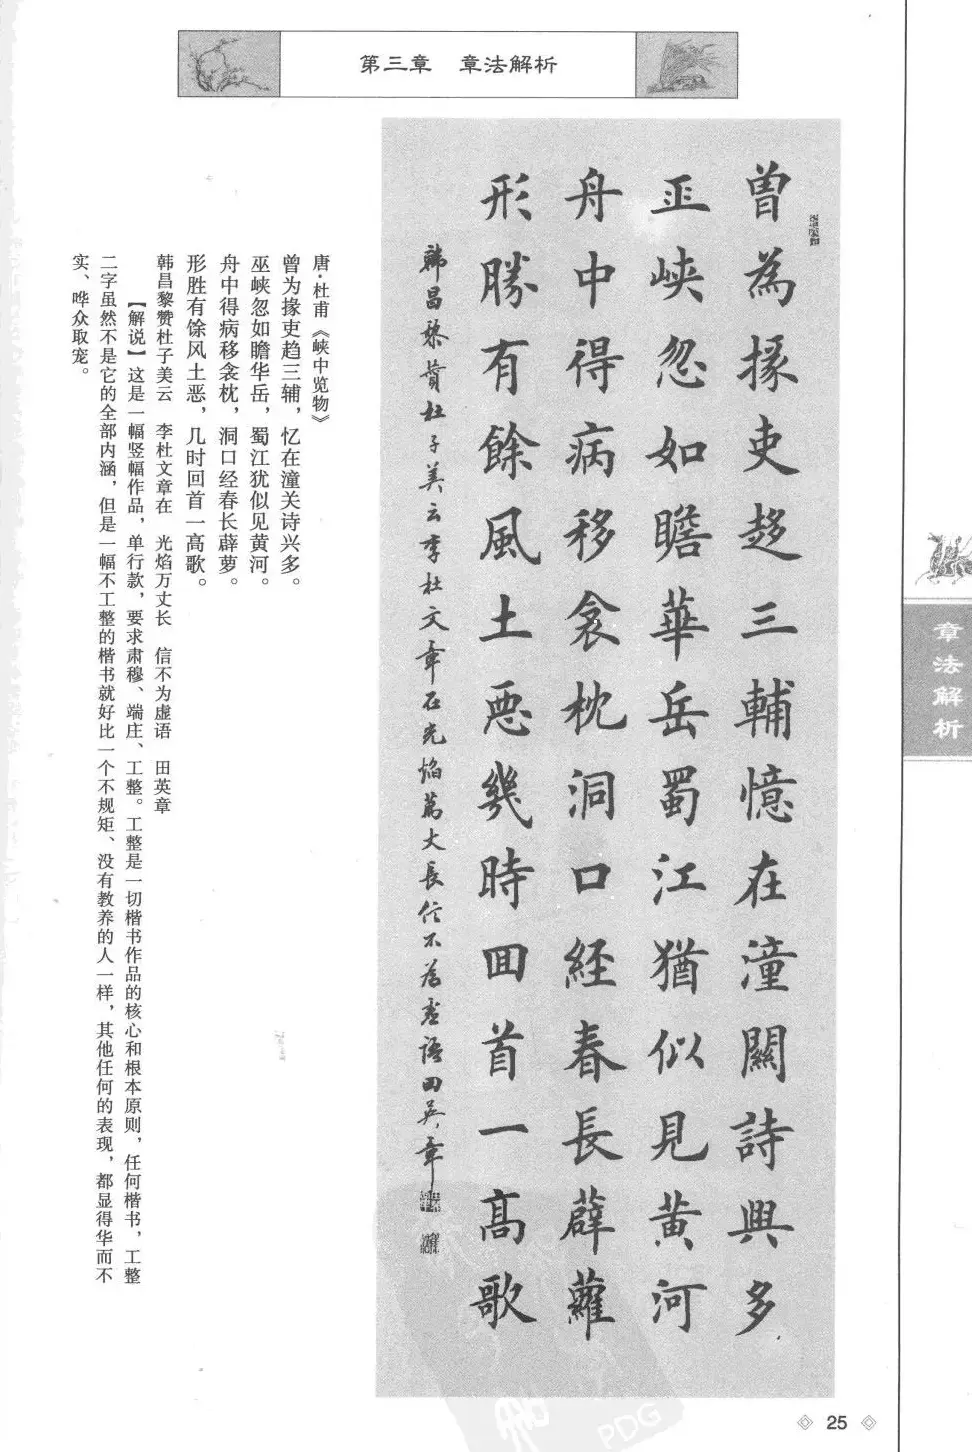 第三章 章法解析
曾為掾吏趍三輔憶在潼關詩興多
巫峡忽如瞻華岳蜀江猶似見黄河
舟中得病移衾枕洞口経春長薜蘿
形勝有餘風土悪幾時囬首一高歌
韩昌黎賛杜子美云李杜文章在光焰萬丈長信不為虚語田英章
唐·杜甫《峡中览物》
曾为掾吏趋三辅，忆在潼关诗兴多。
巫峡忽如瞻华岳，蜀江犹似见黄河。
舟中得病移衾枕，洞口经春长薜萝。
形胜有馀风土恶，几时回首一高歌。
韩昌黎赞杜子美云 李杜文章在 光焰万丈长 信不为虚语 田英章
【解说】这是一幅竖幅作品，单行款，要求肃穆、端庄、工整。工整是一切楷书作品的核心和根本原则，任何楷书，工整
二字虽然不是它的全部内涵，但是一幅不工整的楷书就好比一个不规矩、没有教养的人一样，其他任何的表现，都显得华而不
实、哗众取宠。
章法解析
25
PDG